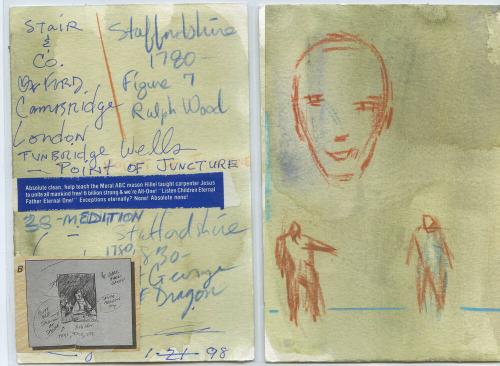 Stair
&
Co.
Oxford.
Cambridge
London
Tunbridge Wells
Staffordshire
1780-
Figure 7
Ralph Wood
- Point of Juncture
Absolute clean, help teach the Moral ABC mason Hillel taught carpenter Jesus
to unite all mankind free! 6 billion strong & we're All-One! Listen Children Eternal
Father Eternal One! Exceptions eternally? None! Absolute none!
38-MEDITION
Staffordshire
1780, 830-
George
Dragon
B
1-21-98